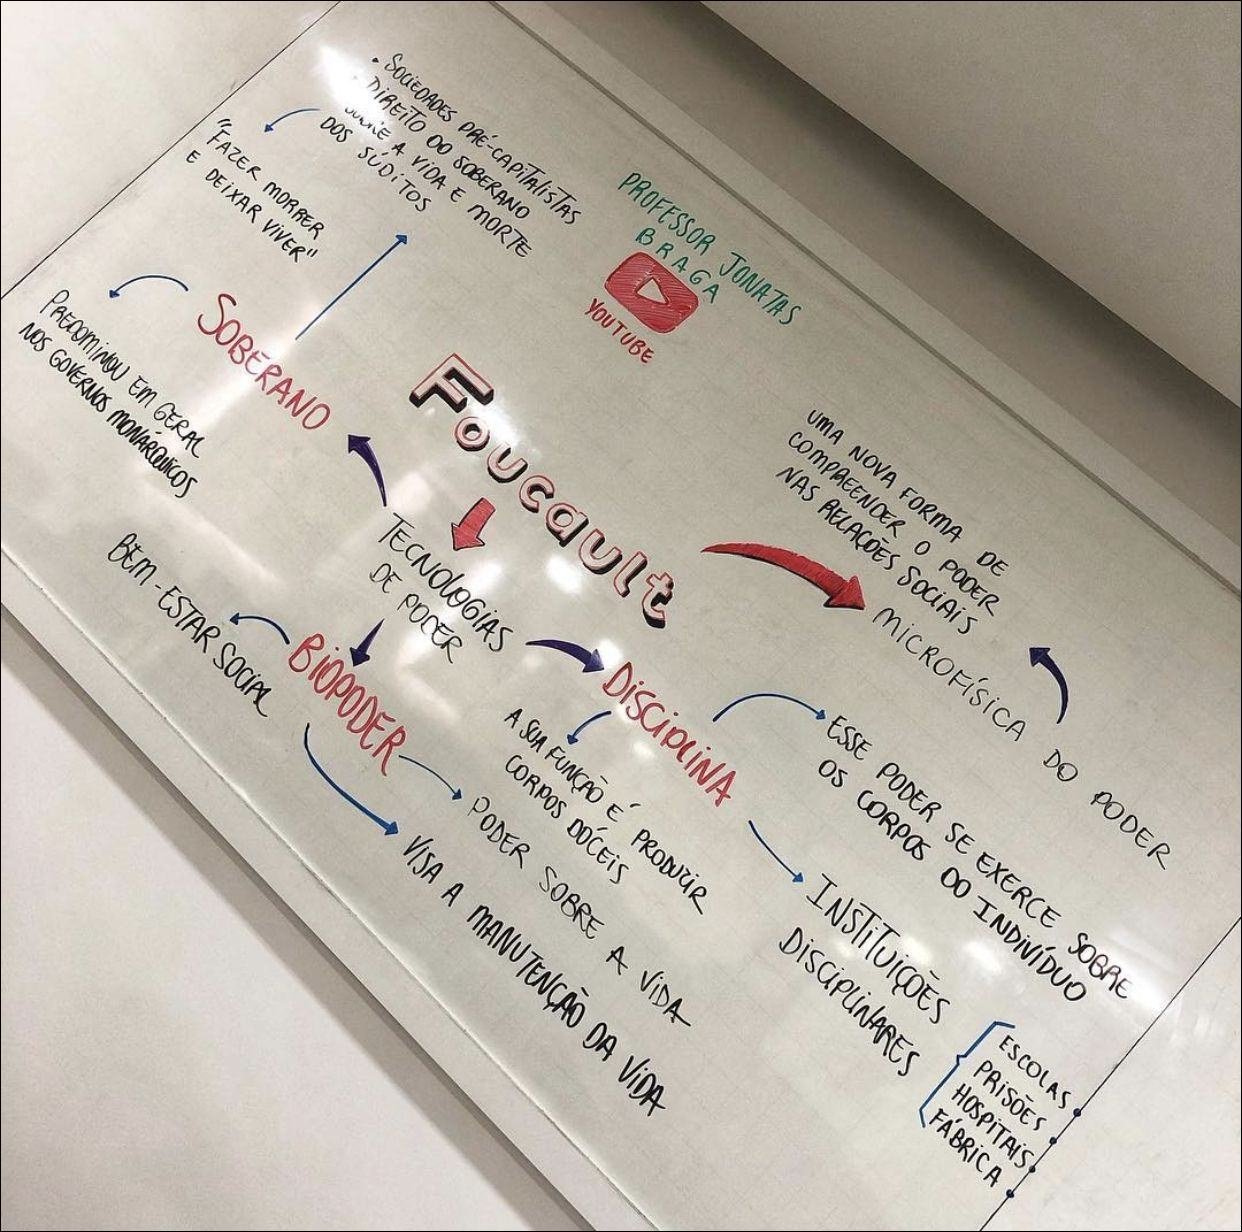 • SOCIEDADES PRÉ-CAPITALISTAS
• DIREITO DO SOBERANO
SOBRE A VIDA E MORTE
DOS SÚDITOS
"FAZER MORRER
E DEIXAR VIVER"
PROFESSOR JONATAS
BRAGA
YOUTUBE
SOBERANO
PREDOMINOU EM GERAL
NOS GOVERNOS MONÁRQUICOS
Foucault
UMA NOVA FORMA DE
COMPREENDER O PODER
NAS RELAÇÕES SOCIAIS
MICROFÍSICA DO PODER
TECNOLOGIAS
DE PODER
BIOPODER
BEM-ESTAR SOCIAL
PODER SOBRE A VIDA
VISA A MANUTENÇÃO DA VIDA
DISCIPLINA
A SUA FUNÇÃO É PRODUZIR
CORPOS DÓCEIS
ESSE PODER SE EXERCE SOBRE
OS CORPOS DO INDIVÍDUO
INSTITUIÇÕES
DISCIPLINARES
ESCOLAS
PRISÕES
HOSPITAIS
FÁBRICA